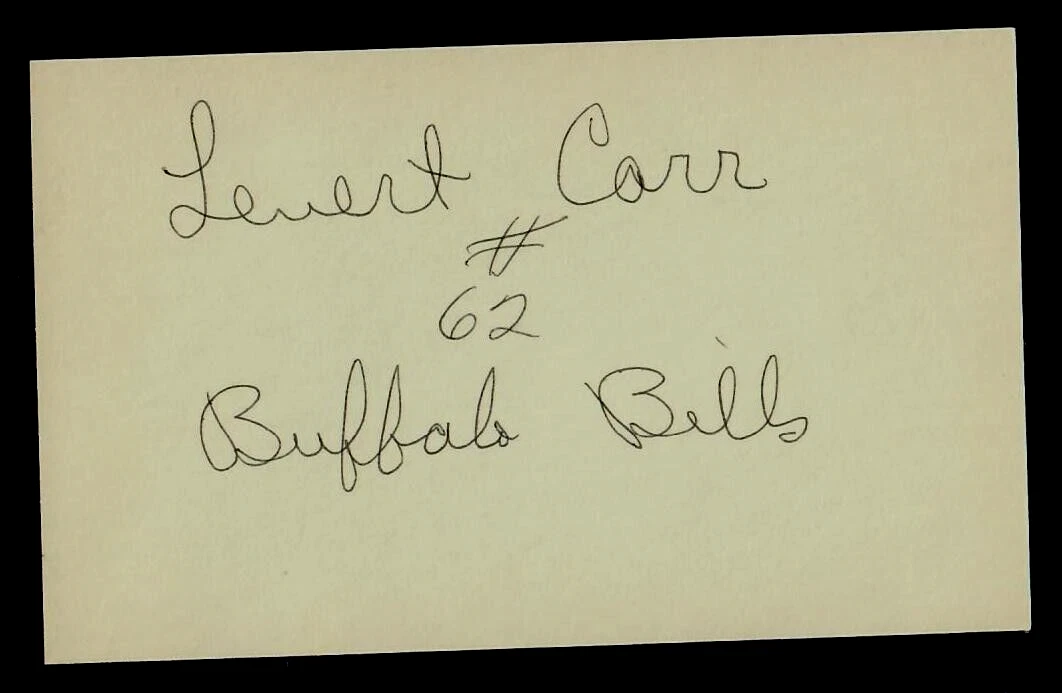 Levert Carr
#
62
Buffalo Bills